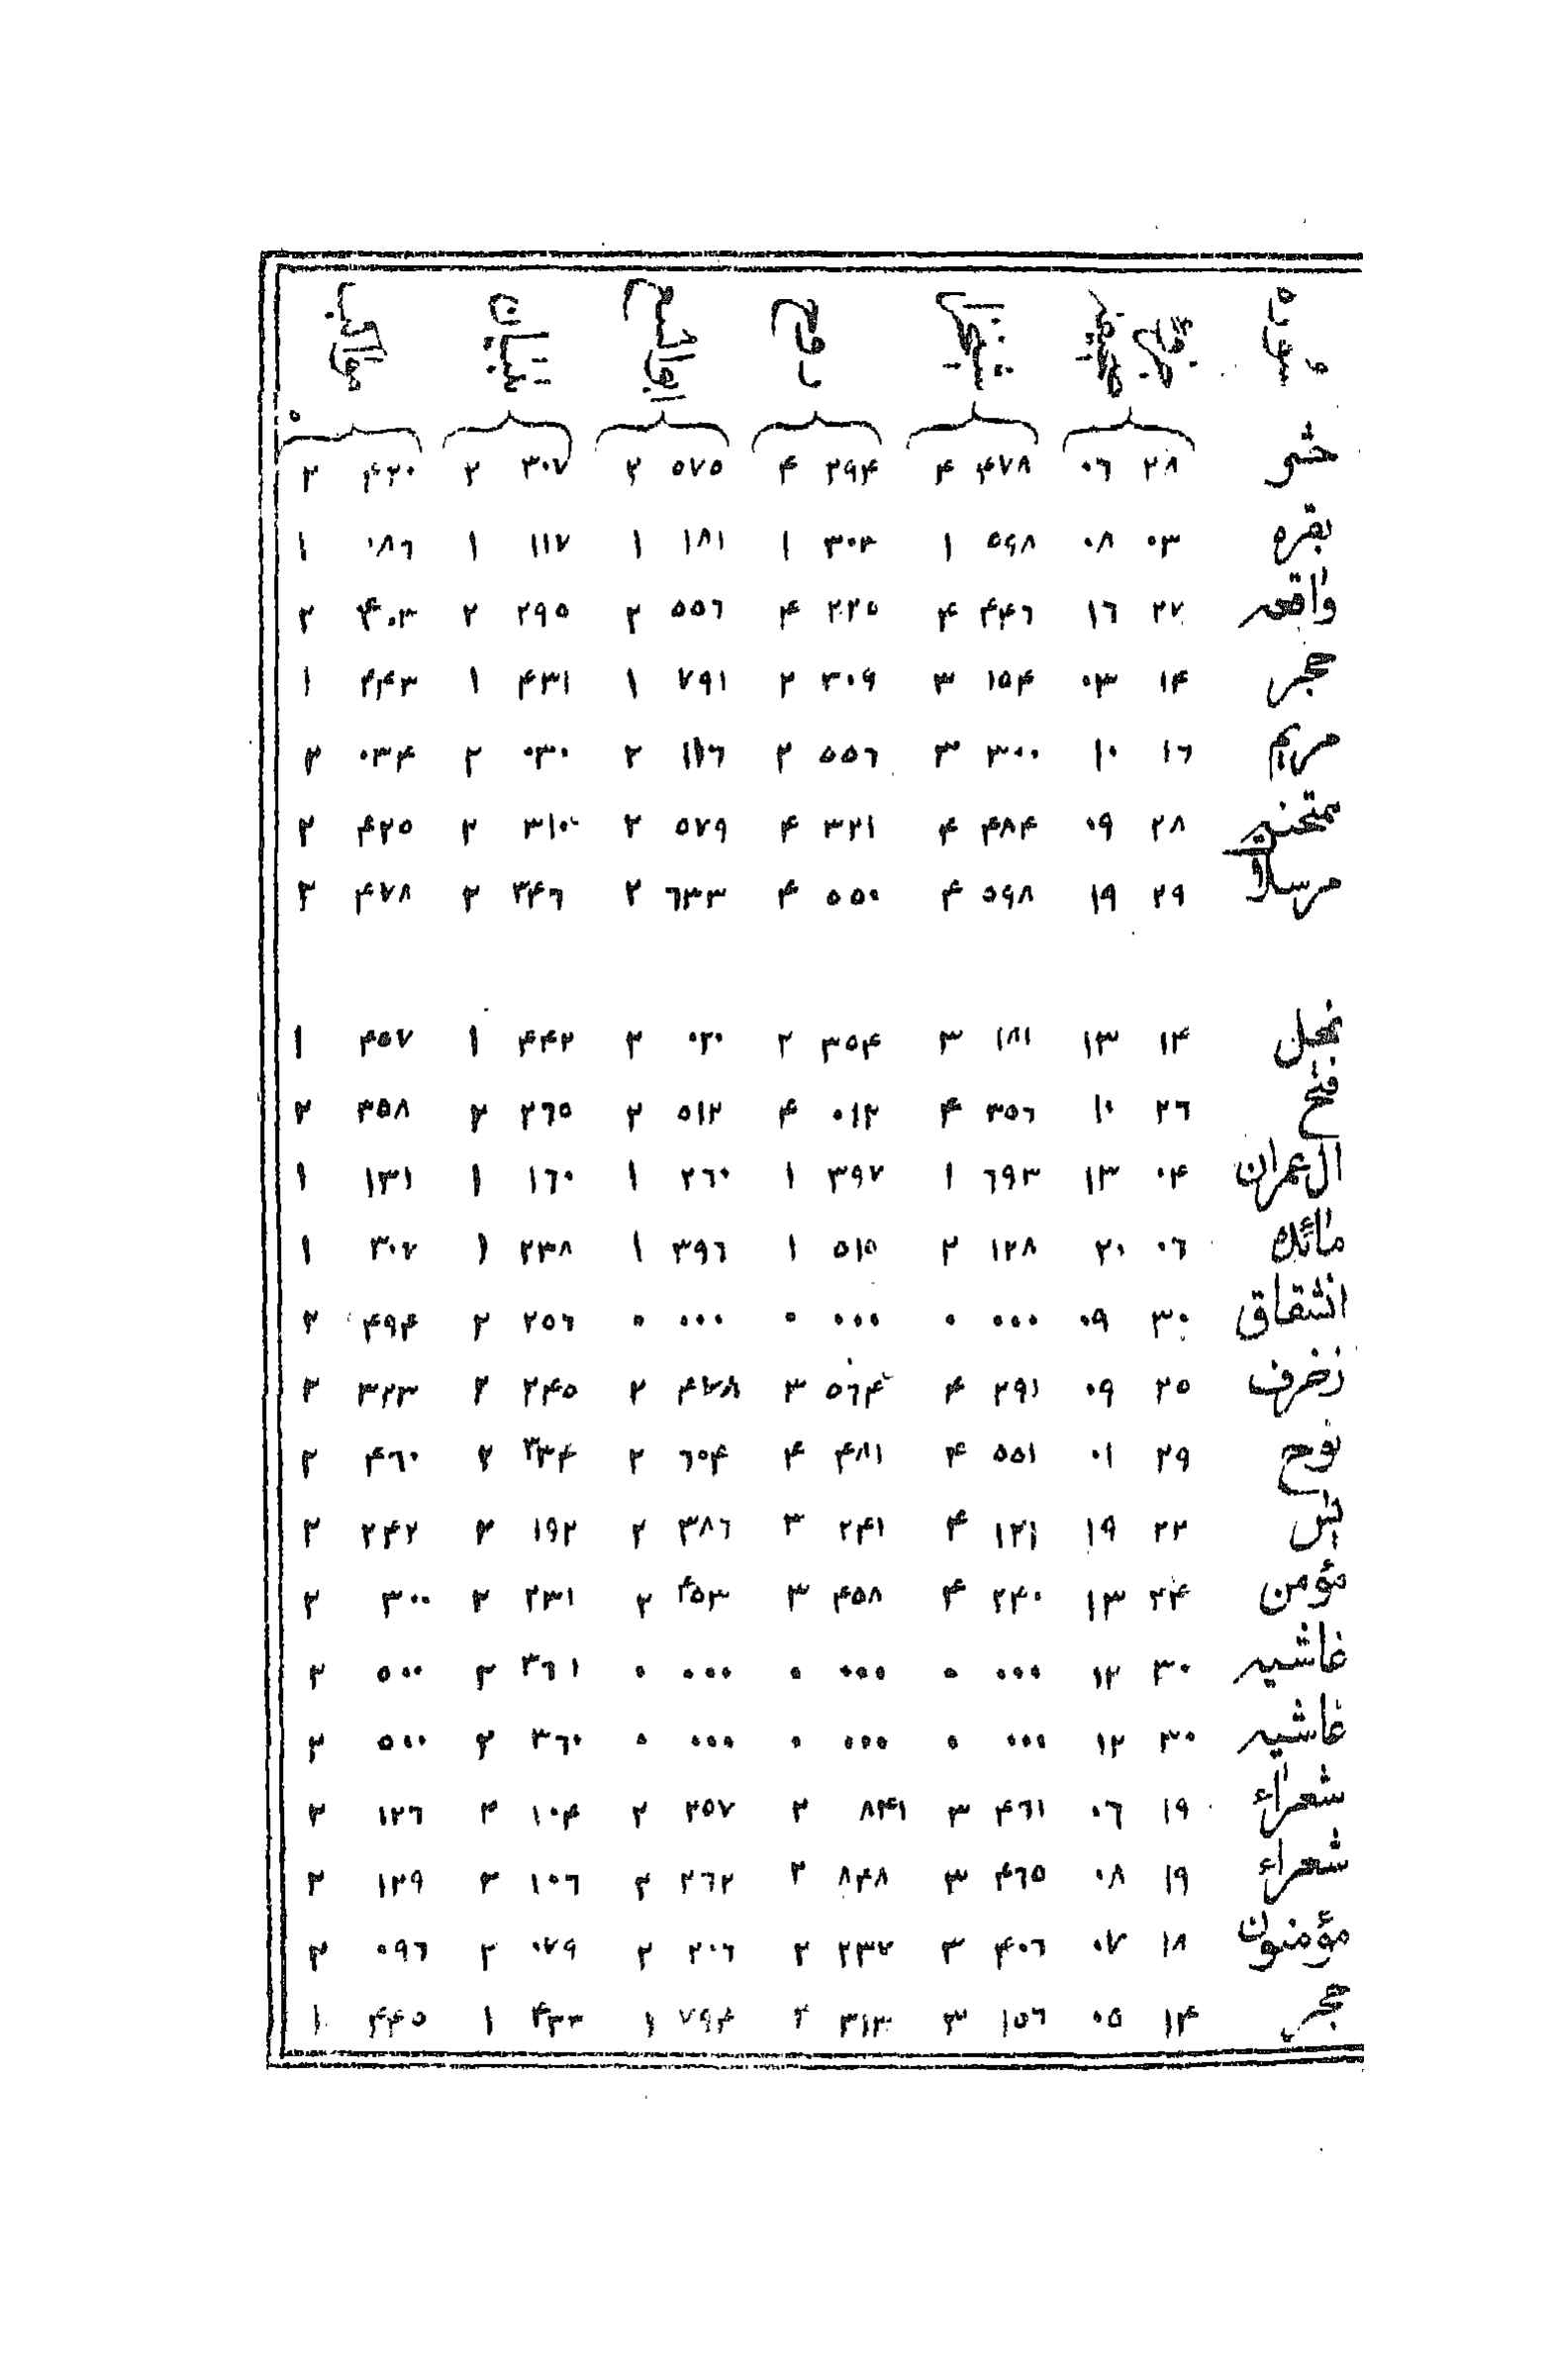 حشر ۲۸ ۰٦ ۴۷۸ ۴ ۲۹۴ ۴ ۵۷۵ ۲ ۳۰۷ ۲ ۴۲۰ ۲
بقره ۰۳ ۰۸ ۵۹۸ ۱ ۳۰۳ ۱ ۱۸۱ ۱ ۱۱۷ ۱ ۰۸٦ ۱
واقعه ۲۷ ۱٦ ۴۴٦ ۴ ۲۲۵ ۴ ۵۵٦ ۲ ۲۹۵ ۲ ۴۰۳ ۲
حجر ۱۴ ۰۳ ۱۵۴ ۳ ۳۰۹ ۲ ۷۹۱ ۱ ۴۳۱ ۱ ۴۴۳ ۱
مریم ۱٦ ۱۰ ۳۰۰ ۳ ۵۵٦ ۲ ۱۱٦ ۲ ۰۳۰ ۲ ۰۳۴ ۲
ممتحنه ۲۸ ۰۹ ۴۸۴ ۴ ۳۲۱ ۴ ۵۷۹ ۲ ۳۱۰ ۲ ۴۲۵ ۲
مرسلات ۲۹ ۱۹ ۵۹۸ ۴ ۵۵۰ ۴ ٦۳۳ ۲ ۳۴٦ ۲ ۴۷۸ ۲
نحل ۱۴ ۱۳ ۱۸۱ ۳ ۳۵۴ ۲ ۰۲۰ ۲ ۴۴۲ ۱ ۴۵۷ ۱
فتح ۲٦ ۱۰ ۳۵٦ ۴ ۰۱۲ ۴ ۵۱۲ ۲ ۲٦۵ ۲ ۳۵۸ ۲
ال عمران ۰۴ ۱۳ ٦۹۳ ۱ ۳۹۷ ۱ ۲٦۰ ۱ ۱٦۰ ۱ ۱۳۱ ۱
مائده ۰٦ ۲۰ ۱۲۸ ۲ ۵۱۵ ۱ ۳۹٦ ۱ ۲۳۸ ۱ ۳۰۷ ۱
انشقاق ۳۰ ۰۹ ۰۰۰ ۰ ۰۰۰ ۰ ۰۰۰ ۰ ۲۵٦ ۲ ۴۹۴ ۲
زخرف ۲۵ ۰۹ ۲۹۱ ۴ ۵٦۴ ۳ ۴۷۸ ۲ ۲۴۵ ۲ ۳۲۳ ۲
نوح ۲۹ ۰۱ ۵۵۱ ۴ ۴۸۱ ۴ ٦۰۴ ۲ ۳۳۴ ۲ ۴٦۰ ۲
یس ۲۲ ۱۹ ۱۲۱ ۴ ۲۴۱ ۳ ۳۸٦ ۲ ۱۹۲ ۲ ۲۴۲ ۲
مؤمن ۲۴ ۱۳ ۲۴۰ ۴ ۴۵۸ ۳ ۴۵۳ ۲ ۲۳۱ ۲ ۳۰۰ ۲
غاشیه ۳۰ ۱۲ ۰۰۰ ۰ ۰۰۰ ۰ ۰۰۰ ۰ ۳٦۱ ۲ ۵۰۰ ۲
غاشیه ۳۰ ۱۲ ۰۰۰ ۰ ۰۰۰ ۰ ۰۰۰ ۰ ۳٦۰ ۲ ۵۰۰ ۲
شعراء ۱۹ ۰٦ ۴٦۱ ۳ ۸۴۱ ۲ ۲۵۷ ۲ ۱۰۴ ۲ ۱۲٦ ۲
شعراء ۱۹ ۰۸ ۴٦۵ ۳ ۸۴۸ ۲ ۲٦۲ ۲ ۱۰٦ ۲ ۱۲۹ ۲
مؤمنون ۱۸ ۰۷ ۴۰٦ ۳ ۲۳۷ ۲ ۲۰٦ ۲ ۰۷۹ ۲ ۰۹٦ ۲
حجر ۱۴ ۰۵ ۱۵٦ ۳ ۳۱۳ ۲ ۷۹۴ ۱ ۴۳۳ ۱ ۴۴۵ ۱